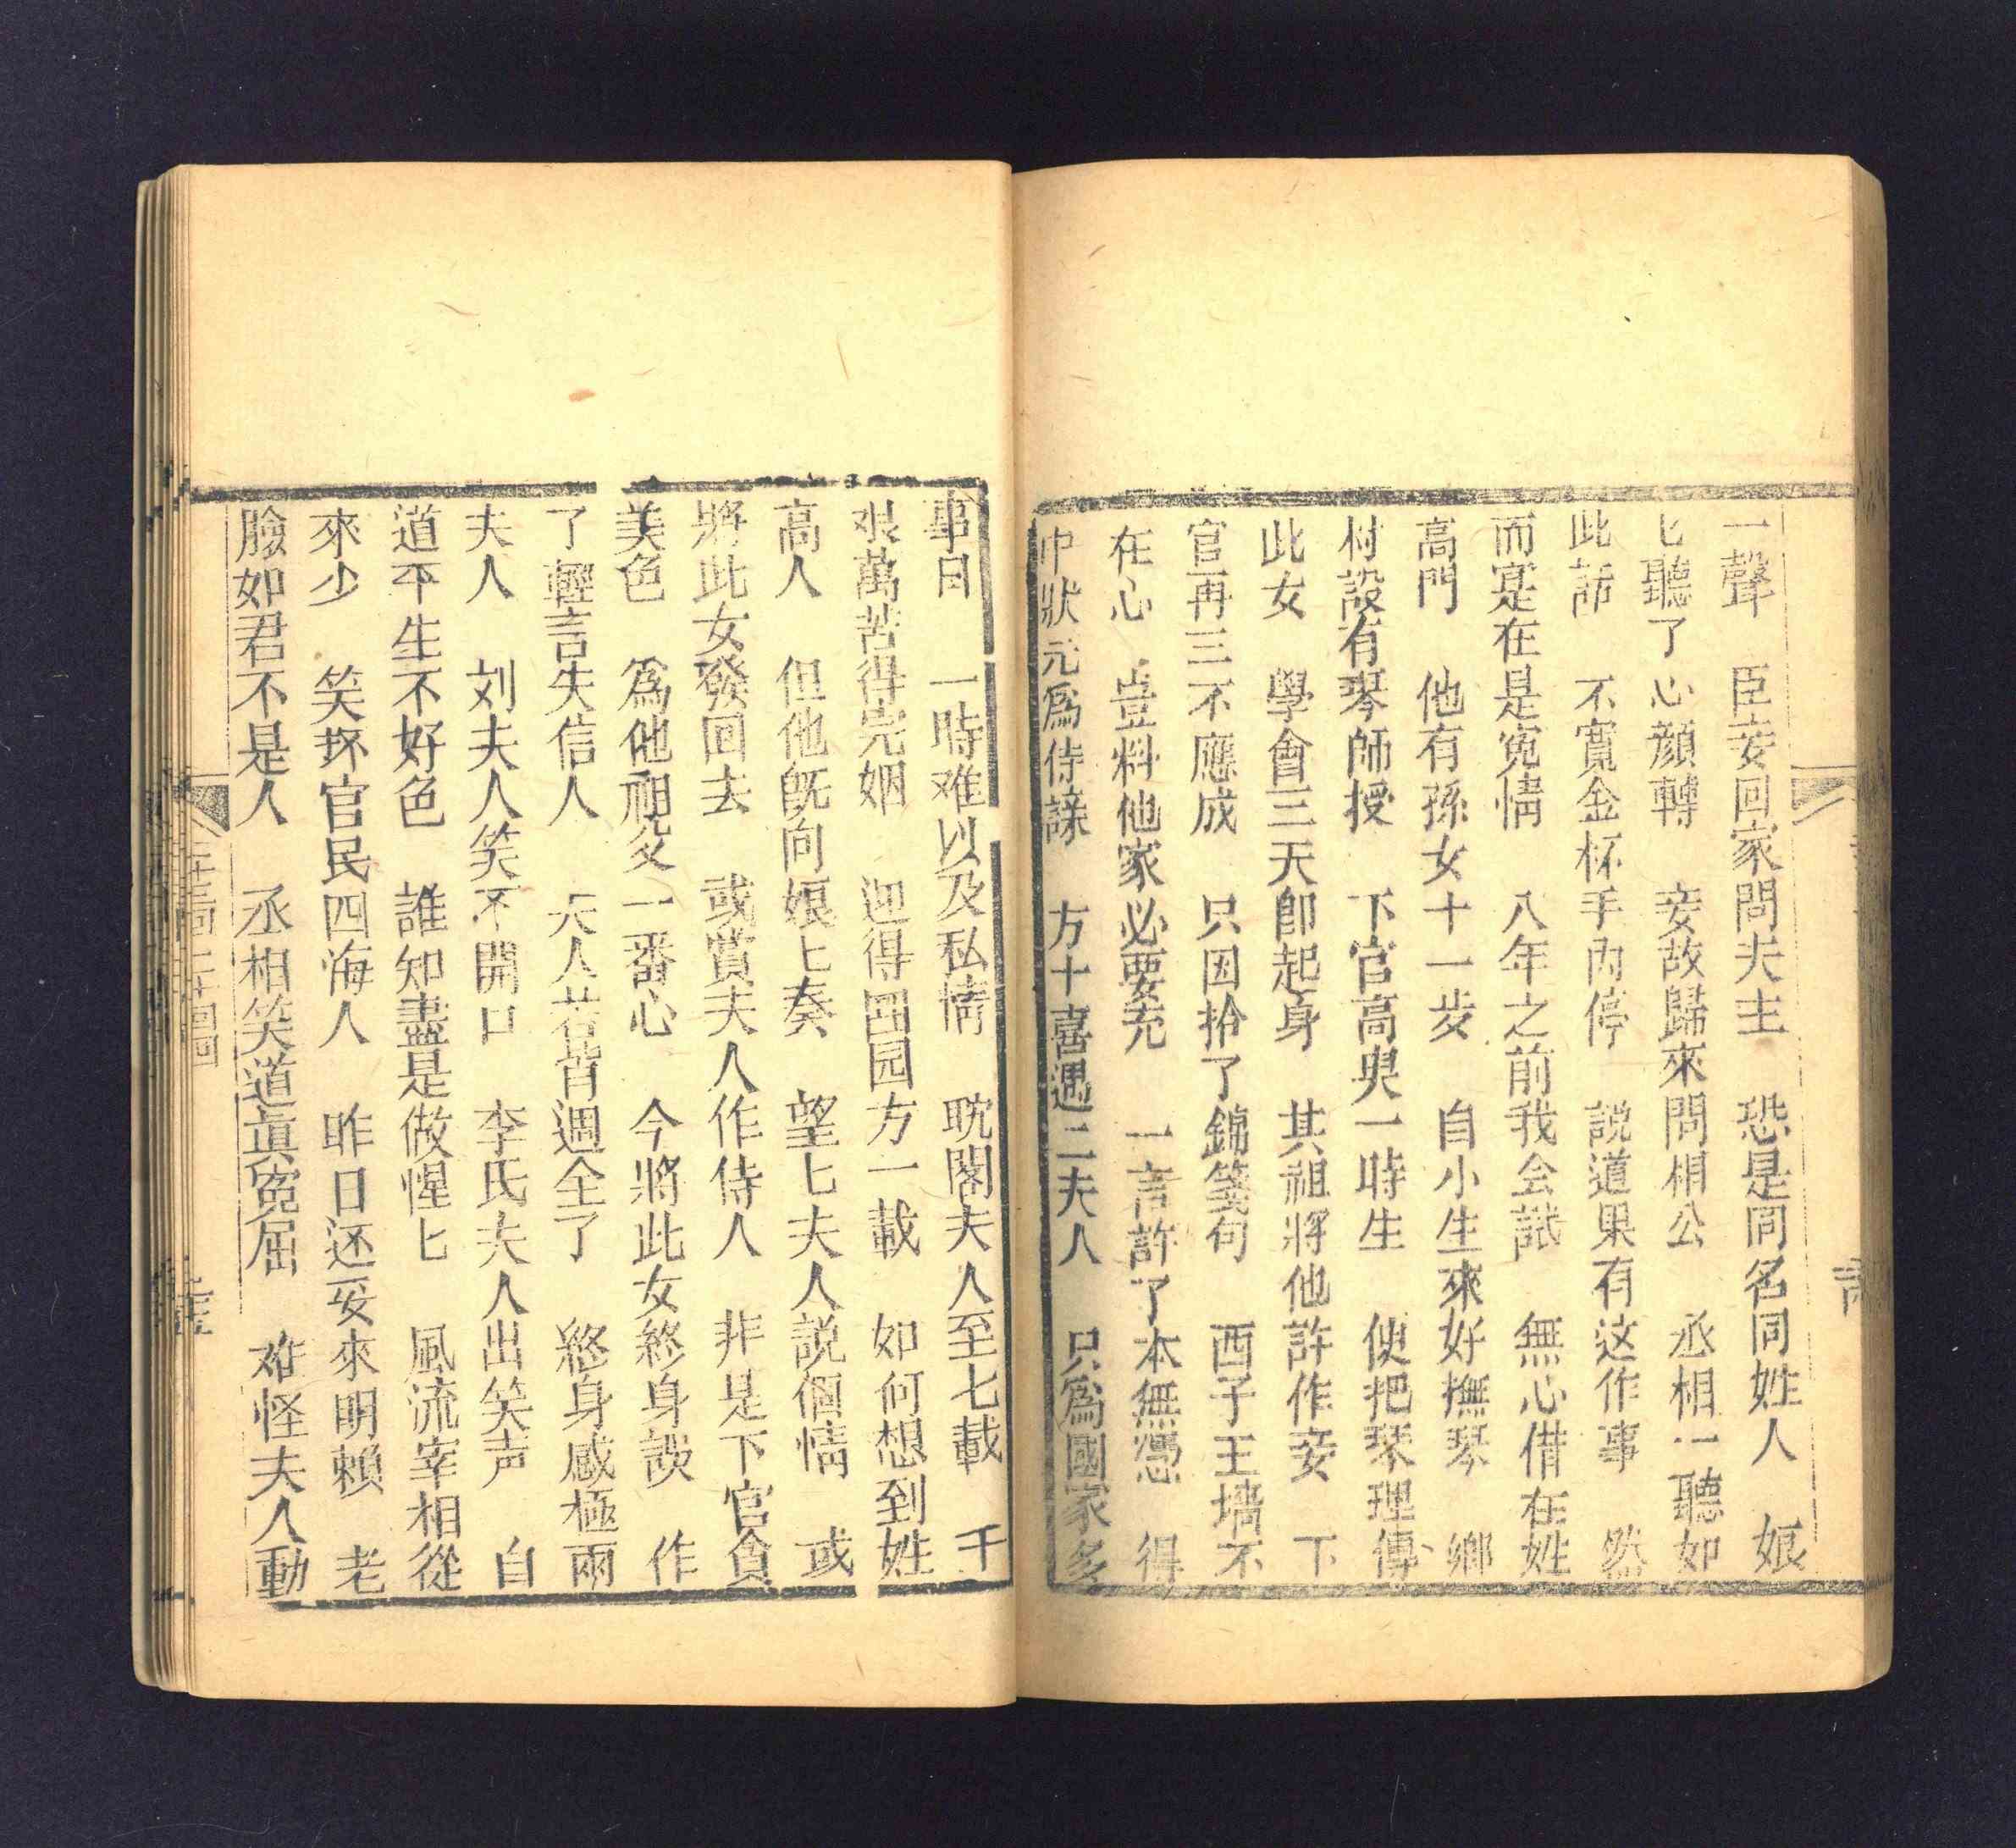 一聲　臣妾回家問夫主　恐是同名同姓人　娘
匕聽了心顔轉　妾故歸來問相公　丞相一聽如
此話　不實金杯手內停　説道果有这作事　然
而寔在是寃情　八年之前我会試　無心借在姓
高門　他有孫女十一步　自小生來好撫琴　鄉
村設有琴師授　下官高與一時生　使把琴理傳
此女　學會三天即起身　其祖將他許作妾　下
官再三不應成　只因拾了錦箋句　西子王墻不
在心　豈料他家必要充　一言許了本無憑　得
中狀元為侍諫　方十喜遇二夫人　只為國家多
事日　一時难以及私情　耽閣夫人至七載　千
艰萬苦得完姻　迎得囬园方一載　如何想到姓
高人　但他旣向娘匕奏　望匕夫人説個情　或
將此女發回去　或賞夫人作侍人　非是下官貪
美色　為他祖父一番心　今將此女終身誤　作
了輕言失信人　夫人若肯週全了　終身感極兩
夫人　刘夫人笑不開口　李氏夫人出笑声　自
道平生不好色　誰知盡是做惺匕　風流宰相從
來少　笑坏官民四海人　昨日还妥來明賴　老
臉如君不是人　丞相笑道眞寃屈　难怪夫人動